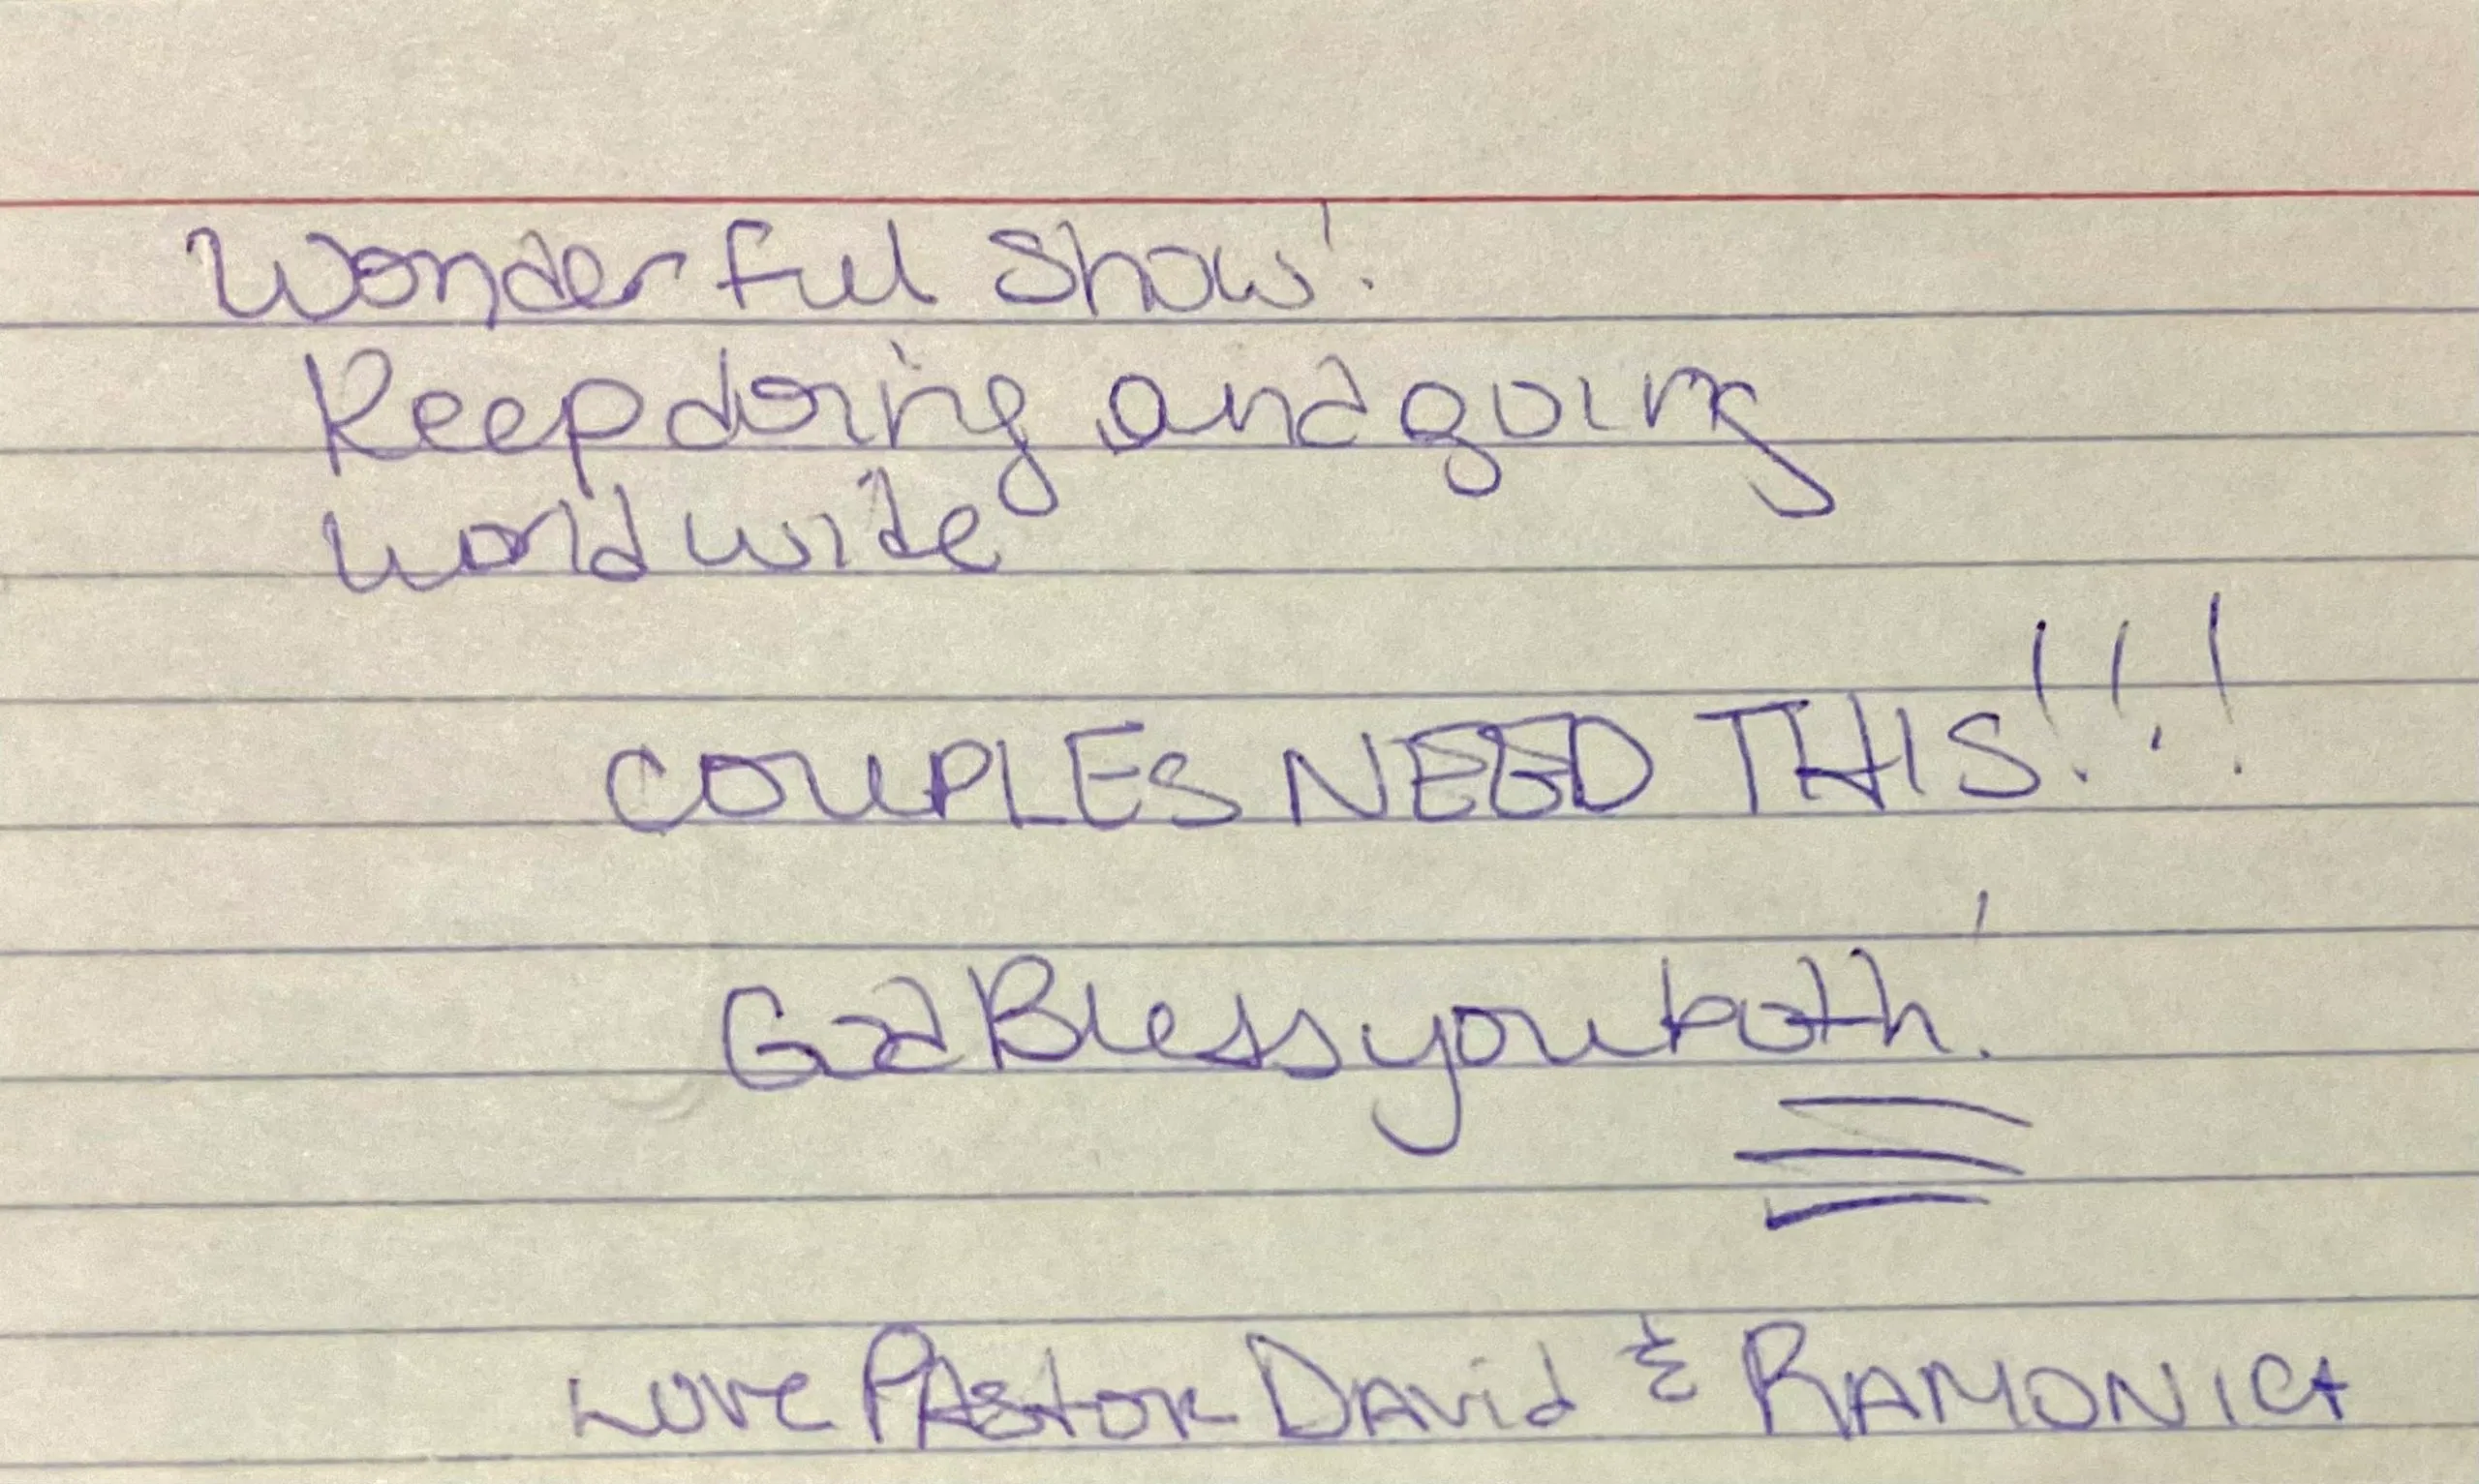 Wonderful Show!
Keep doing and going
world wide
COUPLES NEED THIS!!!
God Bless you both!
Love PAstor DAvid & RAMONICA